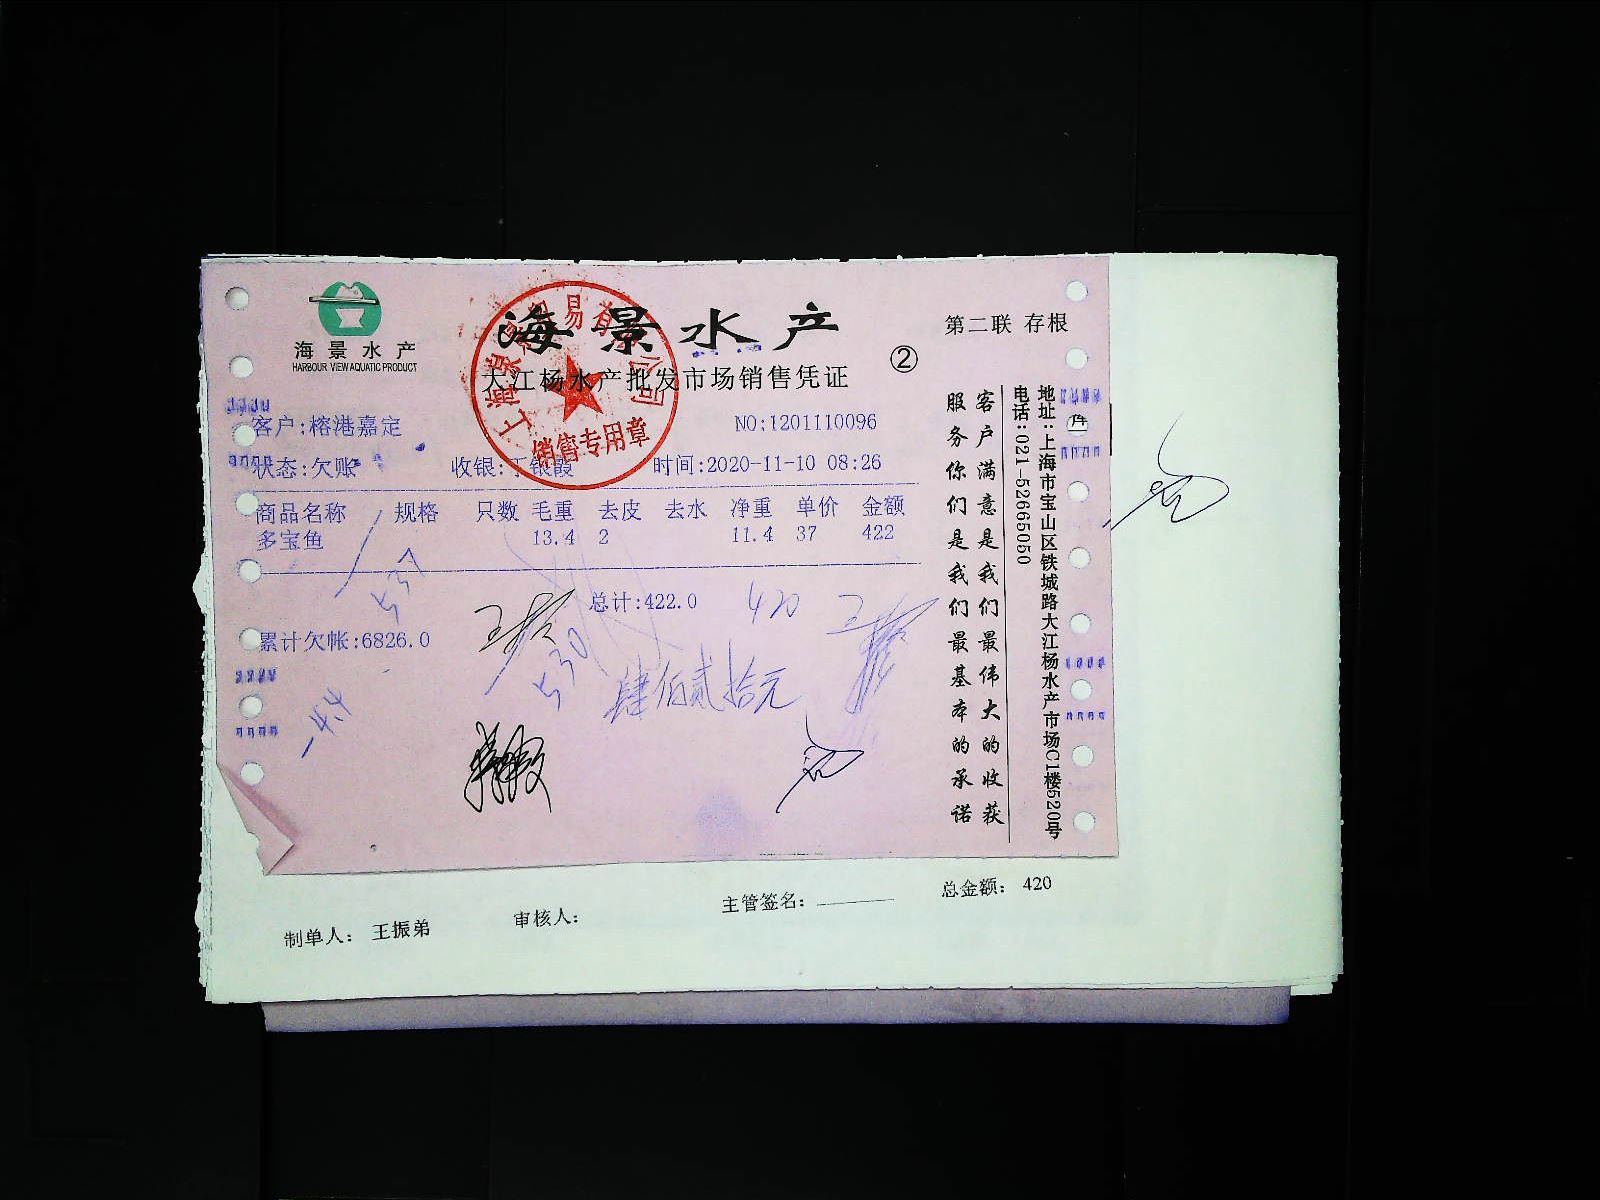 海景水产
HARBOUR VIEW AQUATIC PRODUCT
海景水产
② 第二联 存根
大江杨水产批发市场销售凭证
销售专用章
客户:榕港嘉定 NO:1201110096
状态:欠账 收银:丁银霞 时间:2020-11-10 08:26
商品名称 规格 只数 毛重 去皮 去水 净重 单价 金额
多宝鱼 13.4 2 11.4 37 422
总计:422.0 420
累计欠帐:6826.0
肆佰贰拾元
-4.4
客户满意是我们最伟大的收获
服务你们是我们最基本的承诺
地址:上海市宝山区铁城路大江杨水产市场C1楼520号
电话:021-52665050
制单人: 王振弟 审核人: 主管签名: 总金额: 420